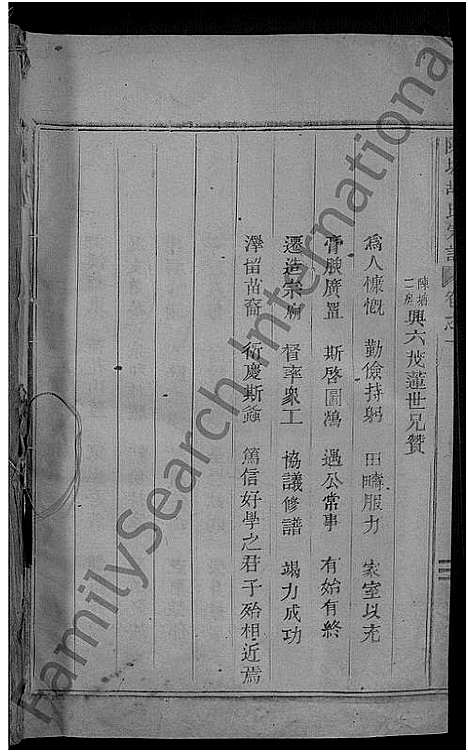 陳塘二房興六茂蓮世兄贊
為人慷慨 勤儉持躬 田疇服力 家室以充
膏腴廣置 斯啓圖鴻 遇公常事 有始有終
遷造宗廟 督率衆工 協議修譜 竭力成功
澤留苗裔 衍慶斯螽 篤信好學之君子殆相近焉
FamilySearch International